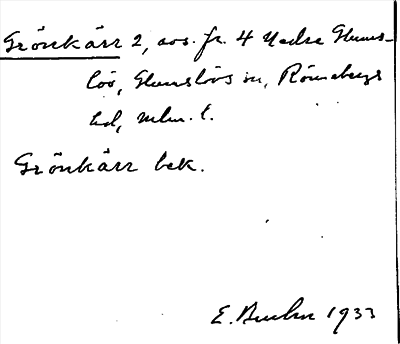 Grönkärr 2, avs. fr. 4 Nedre Glums-
löv, Glumslövs sn, Rönnebergs
hd, Mlm. l.
Grönkärr bek.
E. 1933